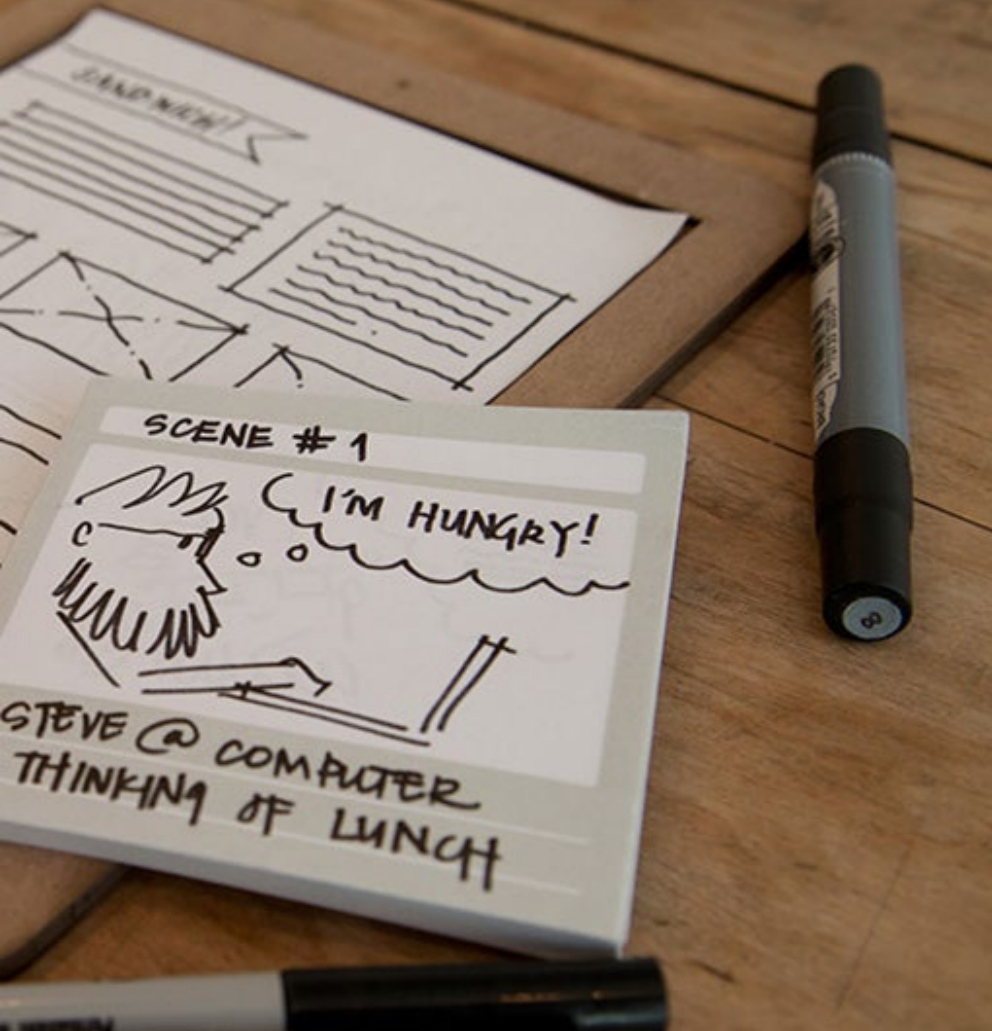 SANDWICH!
SCENE # 1
I'M HUNGRY!
STEVE @ COMPUTER
THINKING OF LUNCH
8